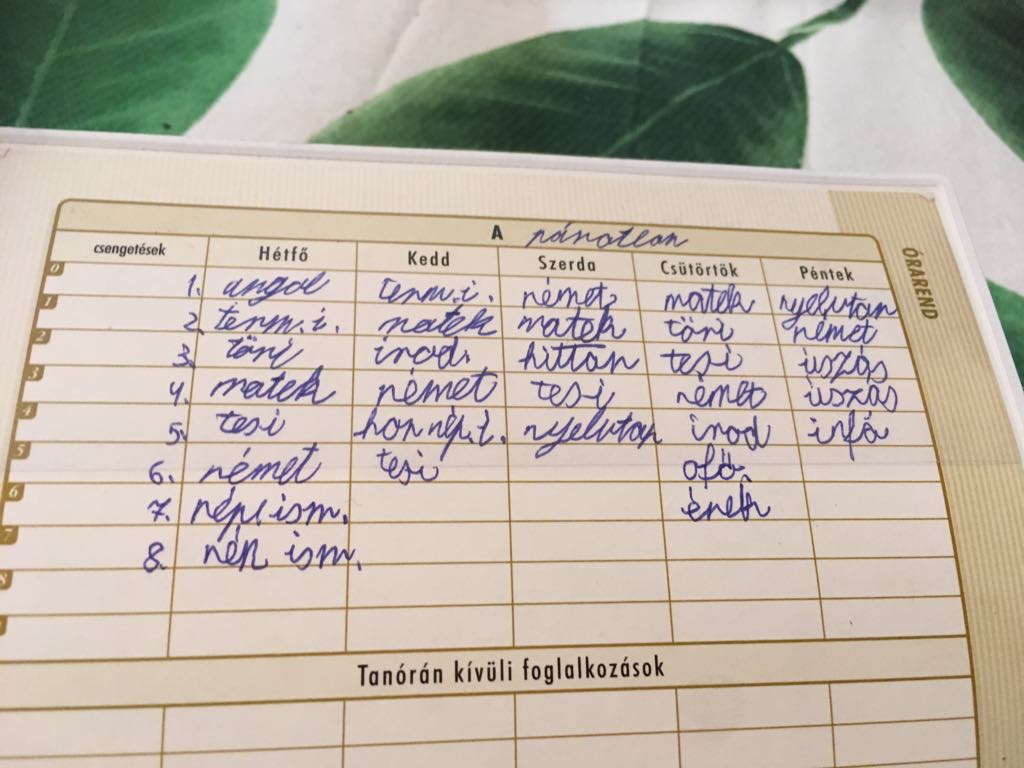 A páratlan
ÓRAREND
csengetések Hétfő Kedd Szerda Csütörtök Péntek
0
1. angol term.i. német matek nyelvtan
1
2. term.i. matek matek töri német
2
3. töri irod. hittan tesi úszás
3
4. matek német tesi német úszás
4
5. tesi hon nép.i. nyelvtan irod infó
5
6. német tesi ofő.
6
7. népi ism. ének
7
8. nép ism.
8
Tanórán kívüli foglalkozások